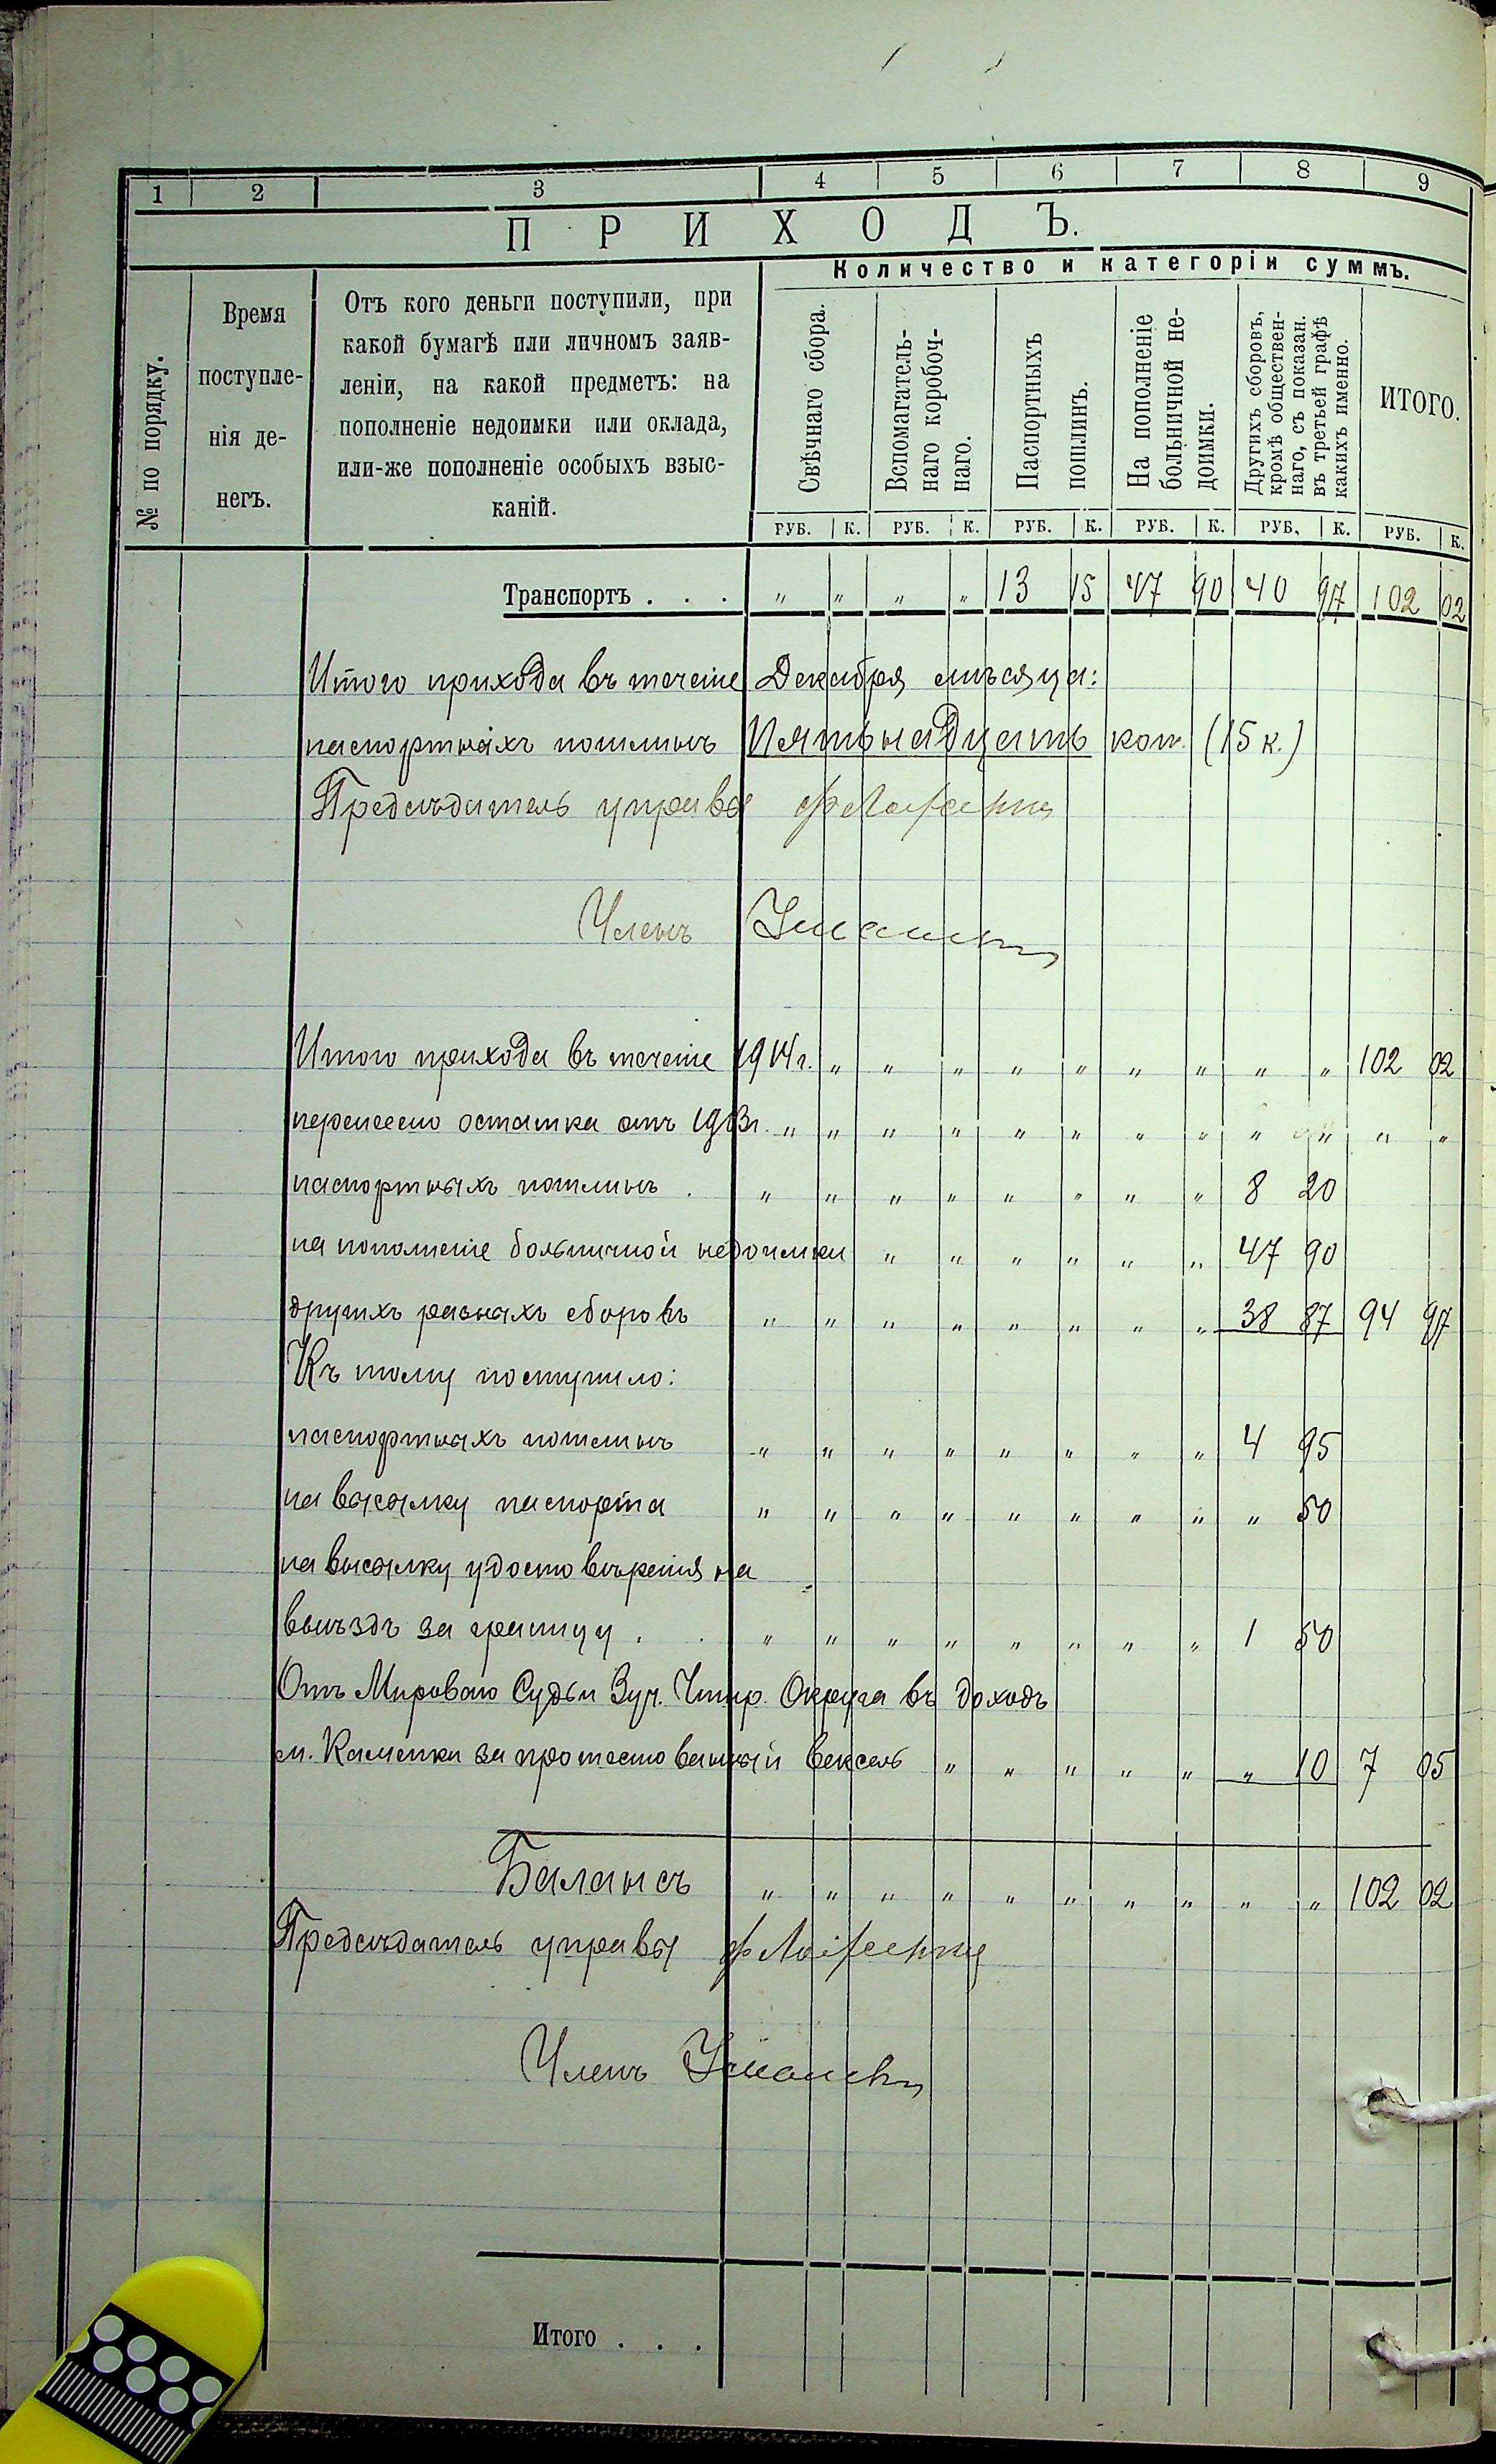 1 2 3 4 5 6 7 8 9
ПРИХОДЪ.
Количество и категоріи суммъ.
№ по порядку.
Время
поступле-
нія де-
негъ.
Отъ кого деньги поступили, при
какой бумагѣ или личномъ заяв-
леніи, на какой предметъ: на
пополненіе недоимки или оклада,
или-же пополненіе особыхъ взыс-
каній.
Свѣчнаго сбора.
Вспомагатель-
наго коробоч-
наго.
Паспортныхъ
пошлинъ.
На пополненіе
больничной не-
доимки.
Другихъ сборовъ,
кромѣ обществен-
наго, съ показан.
въ третьей графѣ
какихъ именно.
ИТОГО.
РУБ. К. РУБ. К. РУБ. К. РУБ. К. РУБ. К. РУБ. К.
Транспортъ . . . " " " " 13 15 47 90 40 97 102 02
Итого прихода въ теченіе Декабря мѣсяца:
паспортныхъ пошлинъ Пятьнадцать коп. (15 к.)
Предсѣдатель управы
Членъ
Итого прихода въ теченіе 1914 г. " " " " " " " " " 102 02
перенесено остатка отъ 1913 г. " " " " " " " " " " " "
паспортныхъ пошлинъ . " " " " " " " " 8 20
на пополненіе больничной недоимки " " " " " " 47 90
другихъ разныхъ сборовъ " " " " " " " " 38 87 94 97
Къ тому поступило:
паспортныхъ пошлинъ " " " " " " " " 4 95
на высылку паспорта " " " " " " " " " 50
на высылку удостовѣренія на
выѣздъ за границу . . " " " " " " " " 1 50
Отъ Мирового Судьи 3 уч. Округа въ доходъ
м. Каменки за протестованный вексель " " " " " " 10 7 05
Балансъ " " " " " " " " " " 102 02
Предсѣдатель управы
Членъ
Итого . . .